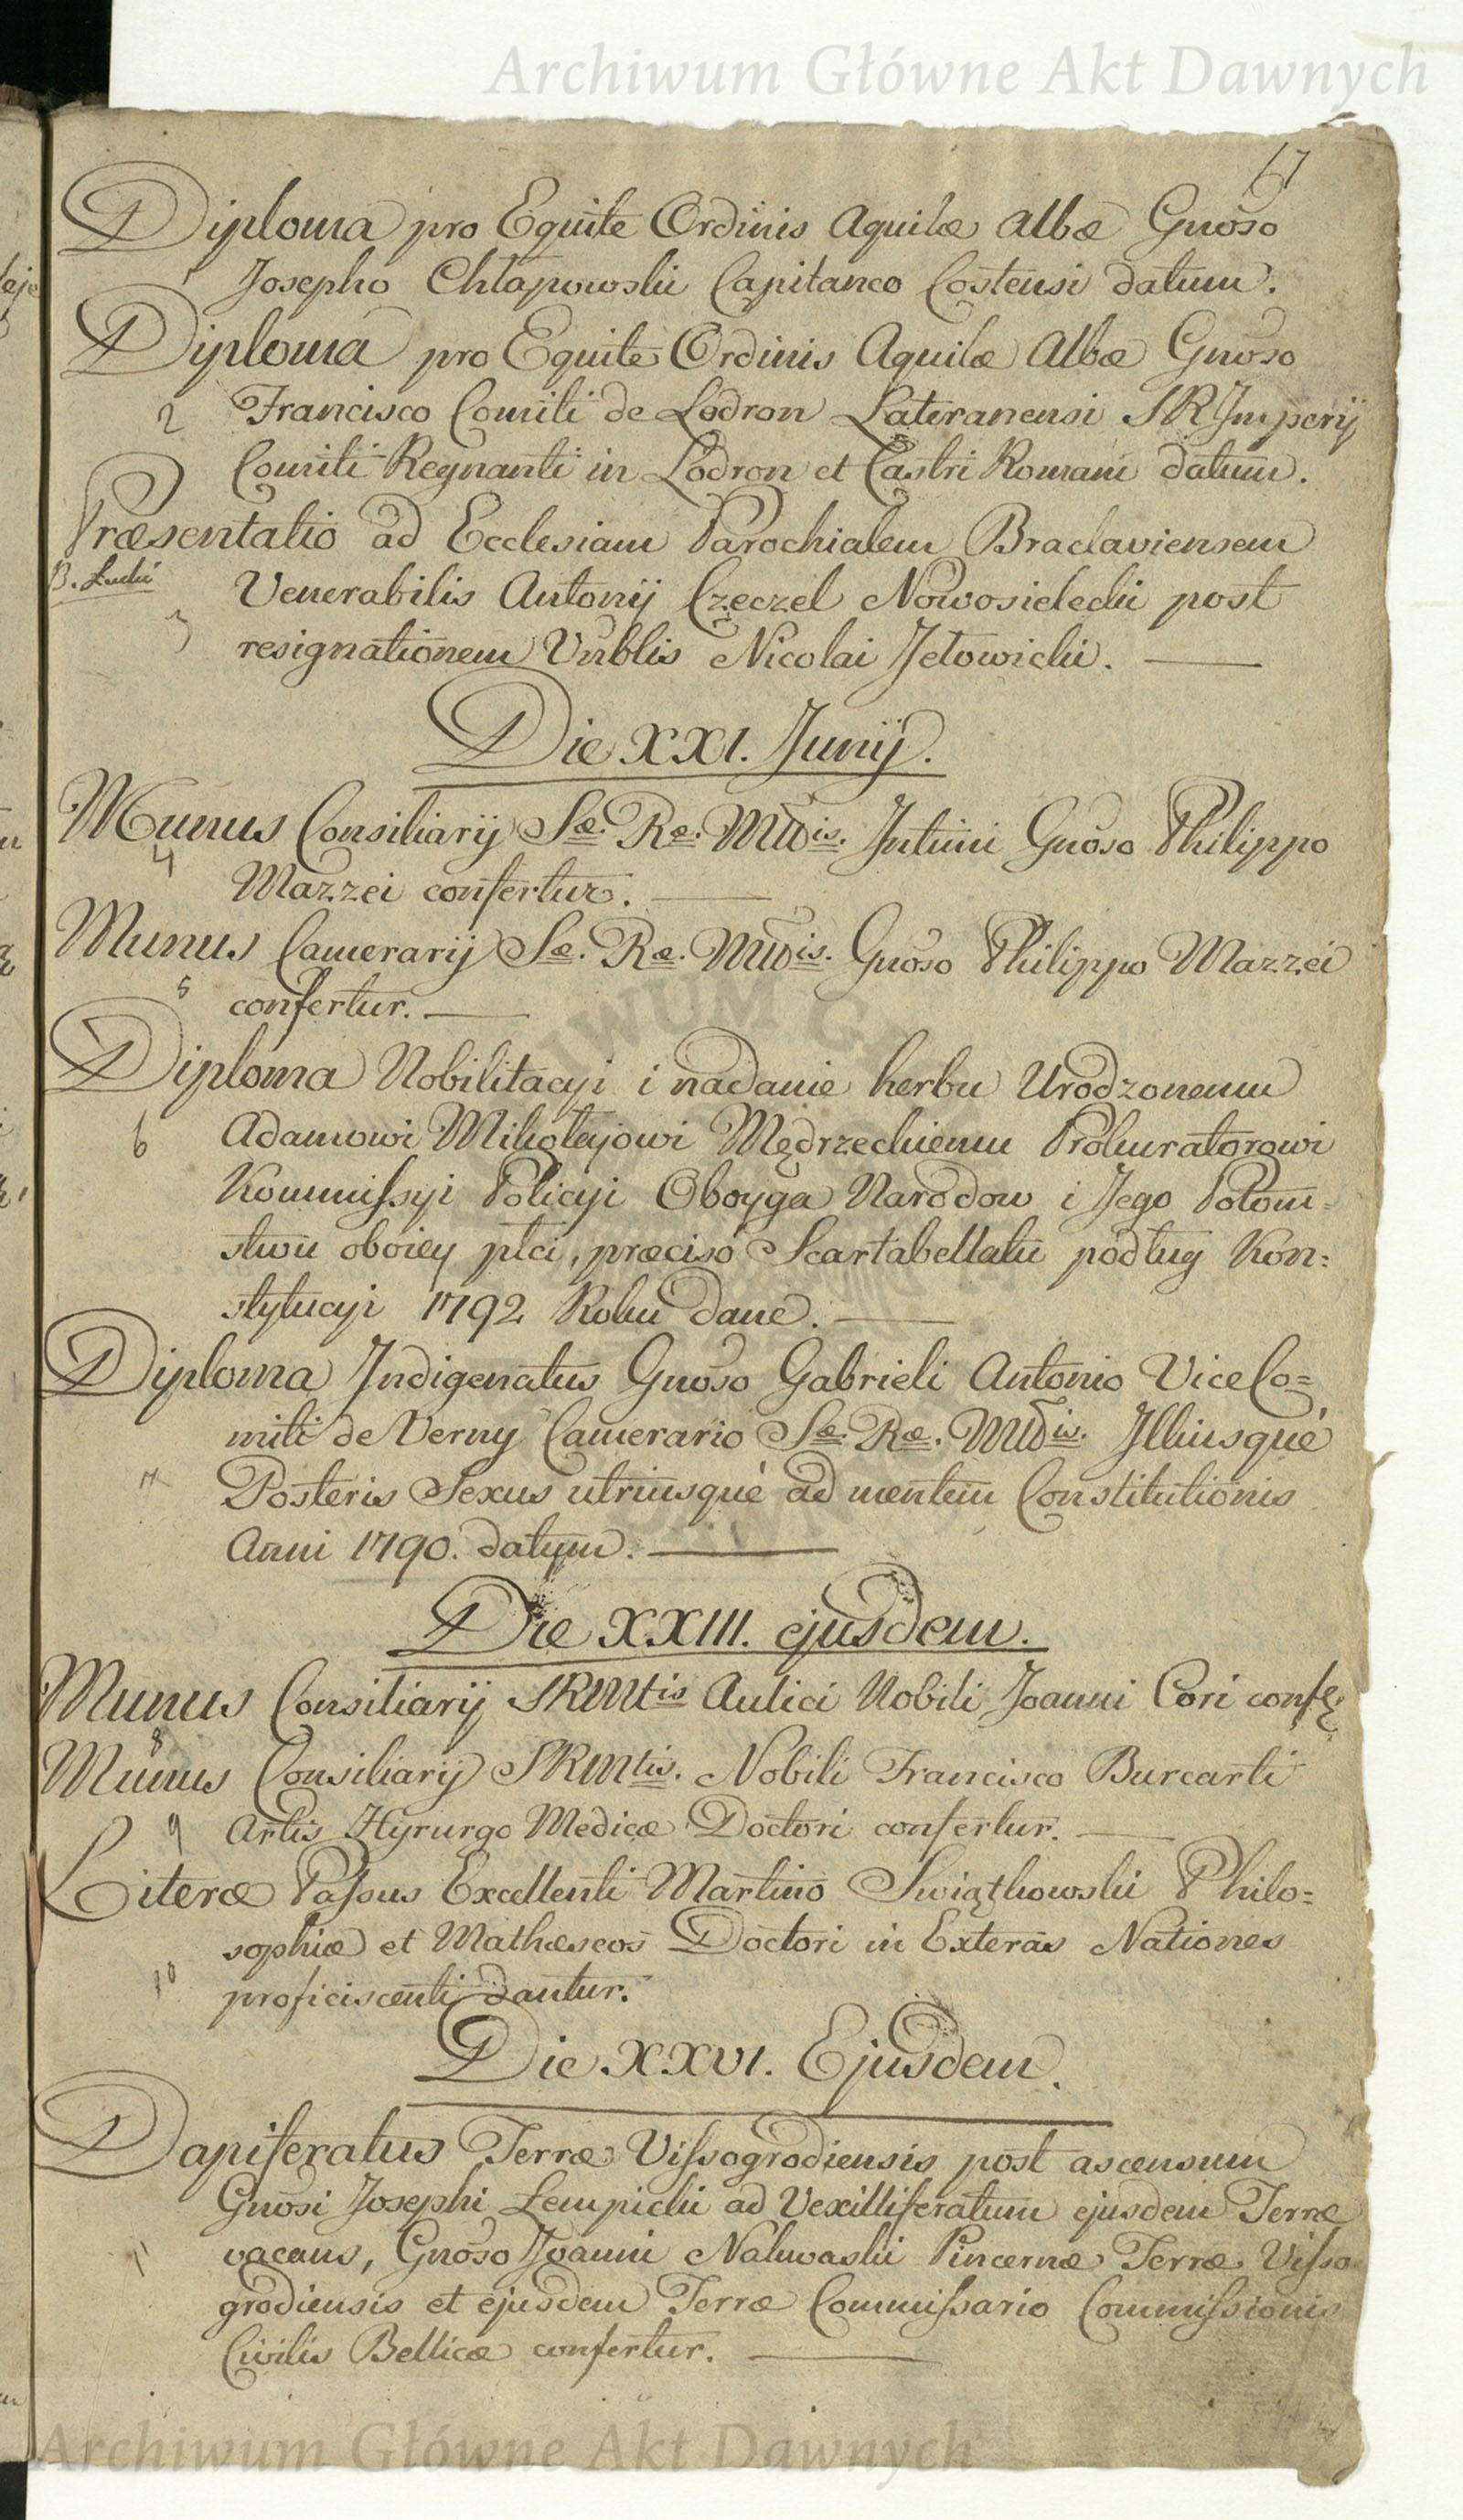 Archiwum Główne Akt Dawnych
17
Diploma pro Equite Ordinis Aquilæ Albæ Gnoso
1 Josepho Chłapowski Capitaneo Costensi datum.
Diploma pro Equite Ordinis Aquilæ Albæ Gnoso
2 Francisco Comiti de Lodron Lateranensi SRImperij
Comiti Regnanti in Lodron et Castri Romani datum.
Præsentatio ad Ecclesiam Parochialem Braclaviensem
B. Lucki Venerabilis Antonij Czeczel Nowosielecki post
3 resignationem Vnblis Nicolai Jełowicki.
Die XXI. Junij.
Munus Consiliarij Sæ. Ræ. Mttis. Intimi Gnoso Philippo
4 Mazzei confertur.
Munus Camerarij Sæ. Ræ. Mttis. Gnoso Philippo Mazzei
5 confertur.
Diploma Nobilitacyi i nadanie herbu Urodzonemu
6 Adamowi Mikołajowi Mędrzeckiemu Prokuratorowi
Kommissyi Policyi Oboyga Narodow i Jego Potom=
stwu oboiey płci, præcisó Scartabellatu podług Kon=
stytucyi 1792 Roku dane.
Diploma Indigenatus Gnoso Gabrieli Antonio ViceCo=
miti de Verny Camerario Sæ. Ræ. Mttis. Illiusqué
7 Posteris Sexus utriusqué ad mentem Constitutionis
Anni 1790. datum.
Die XXIII. ejusdem.
Munus Consiliarij SRMttis Aulici Nobili Joanni Cori conf
8
Munus Consiliarij SRMttis. Nobili Francisco Burcarti
9 Artis Hyrurgo Medicæ Doctori confertur.
Literæ Passus Excellenti Martino Swiątkowski Philo=
sophiæ et Matheseos Doctori in Exteras Nationes
10 proficiscenti dantur.
Die XXVI. Ejusdem.
Dapiferatus Terræ Vissogrodiensis post ascensum
Gnosi Josephi Lempicki ad Vexilliferatum ejusdem Terræ
11 vacans, Gnoso Joanni Nakwaski Pincernæ Terræ Visso
grodiensis et ejusdem Terræ Commissario Commissionis
Civilis Bellicæ confertur.
Archiwum Główne Akt Dawnych